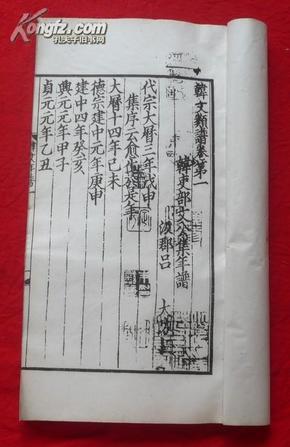 韓文類譜卷第一
韓吏部文公集年譜
汲郡呂 大
代宗大曆三年戊申
集序云愈生於是年
大曆十四年己未
德宗建中元年庚申
建中四年癸亥
興元元年甲子
貞元元年乙丑